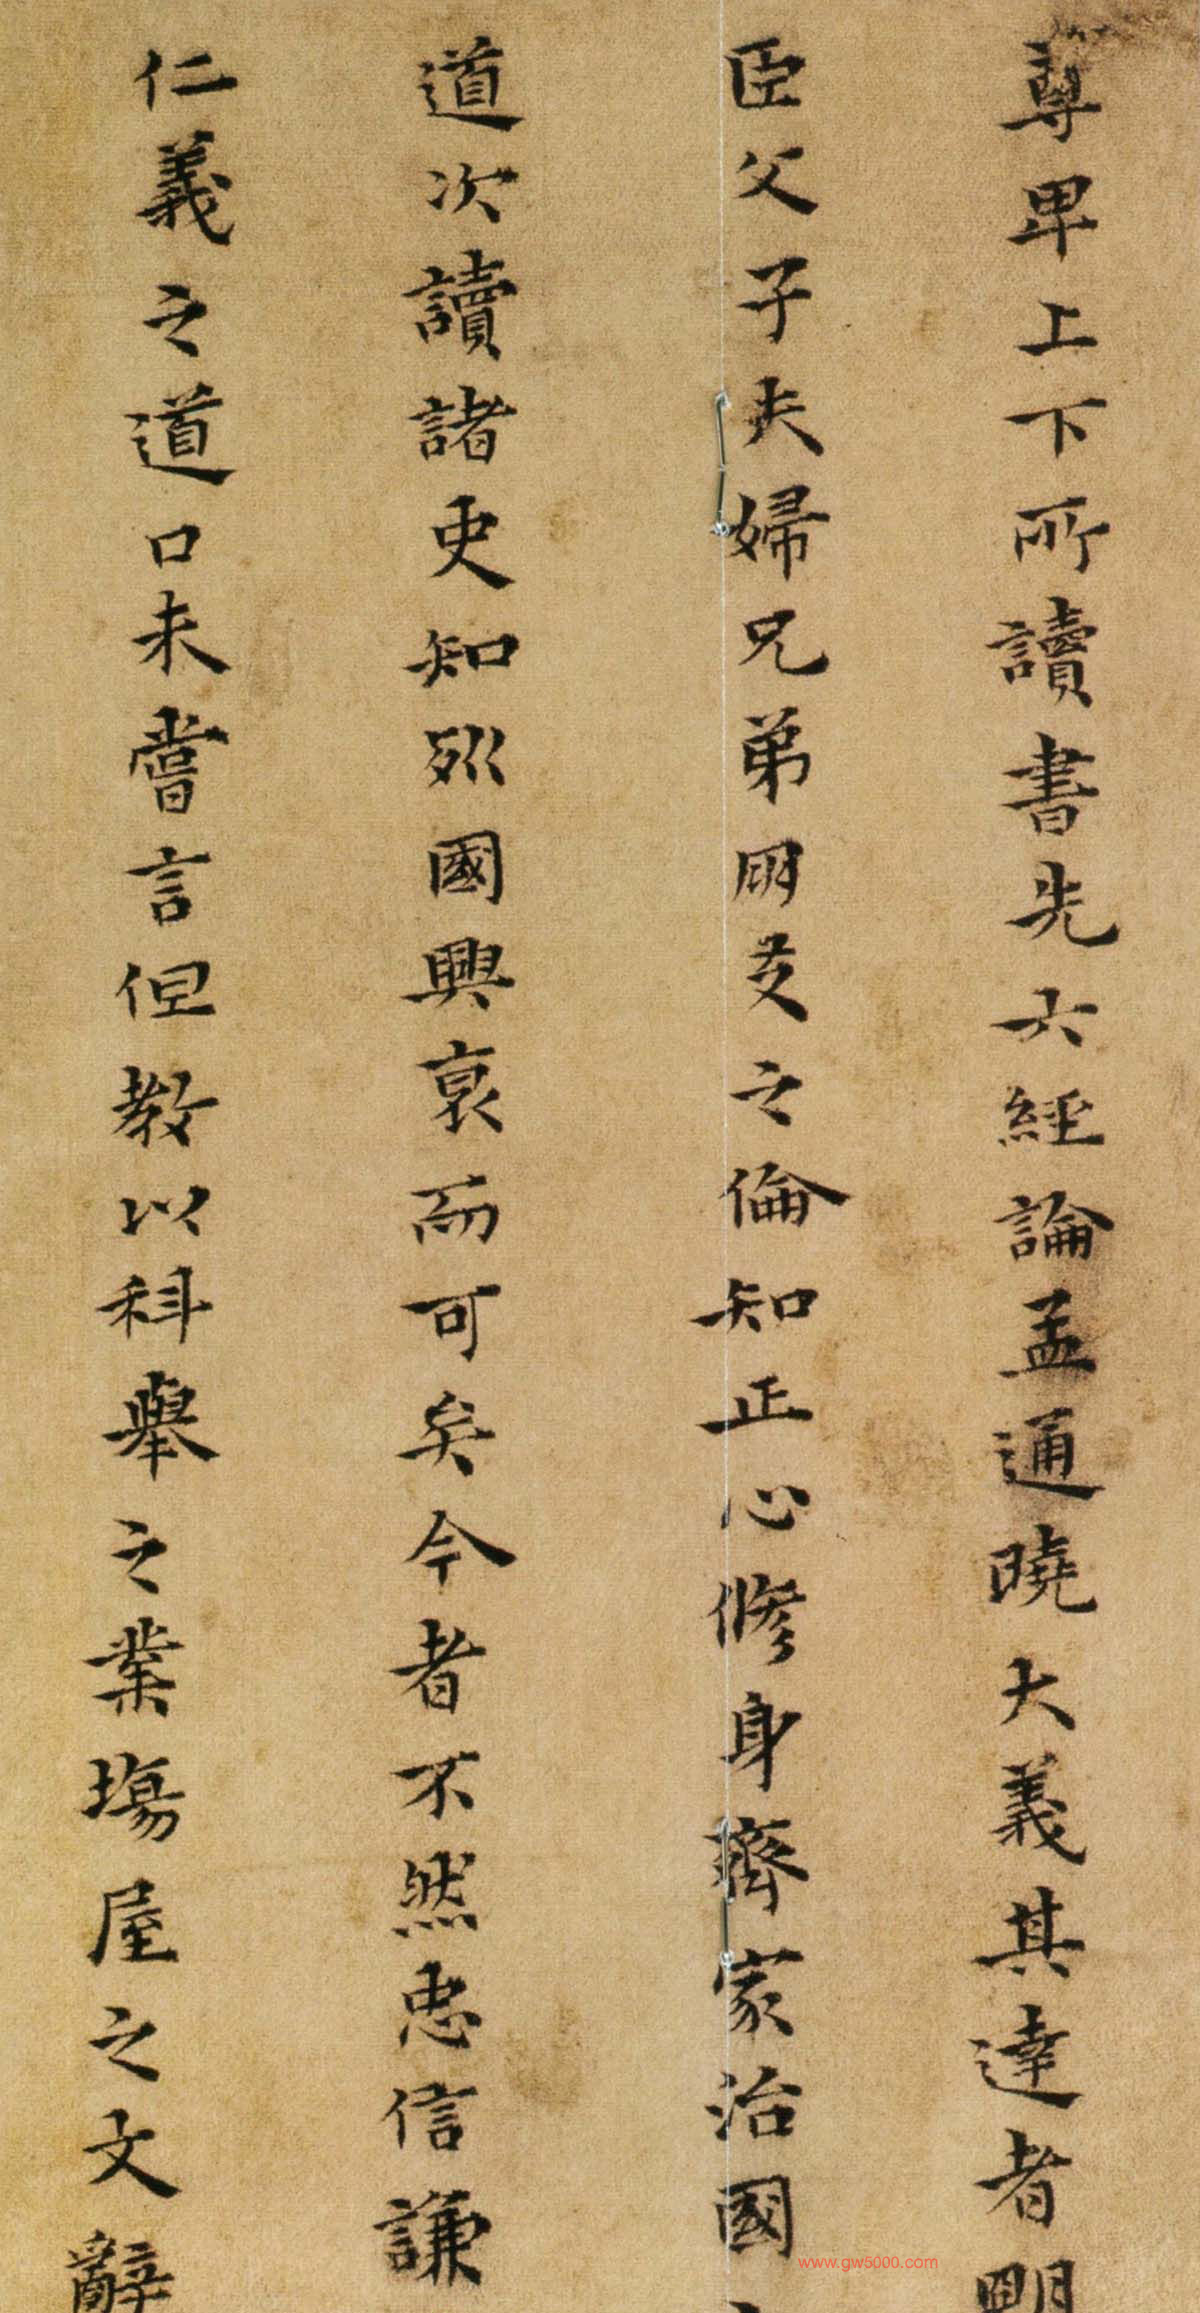 尊卑上下所讀書先六經論孟通曉大義其達者明
臣父子夫婦兄弟朋友之倫知正心修身齊家治國
道次讀諸史知列國興衰而可矣今者不然忠信謙
仁義之道口未嘗言但教以科舉之業塲屋之文辭
www.gw5000.com